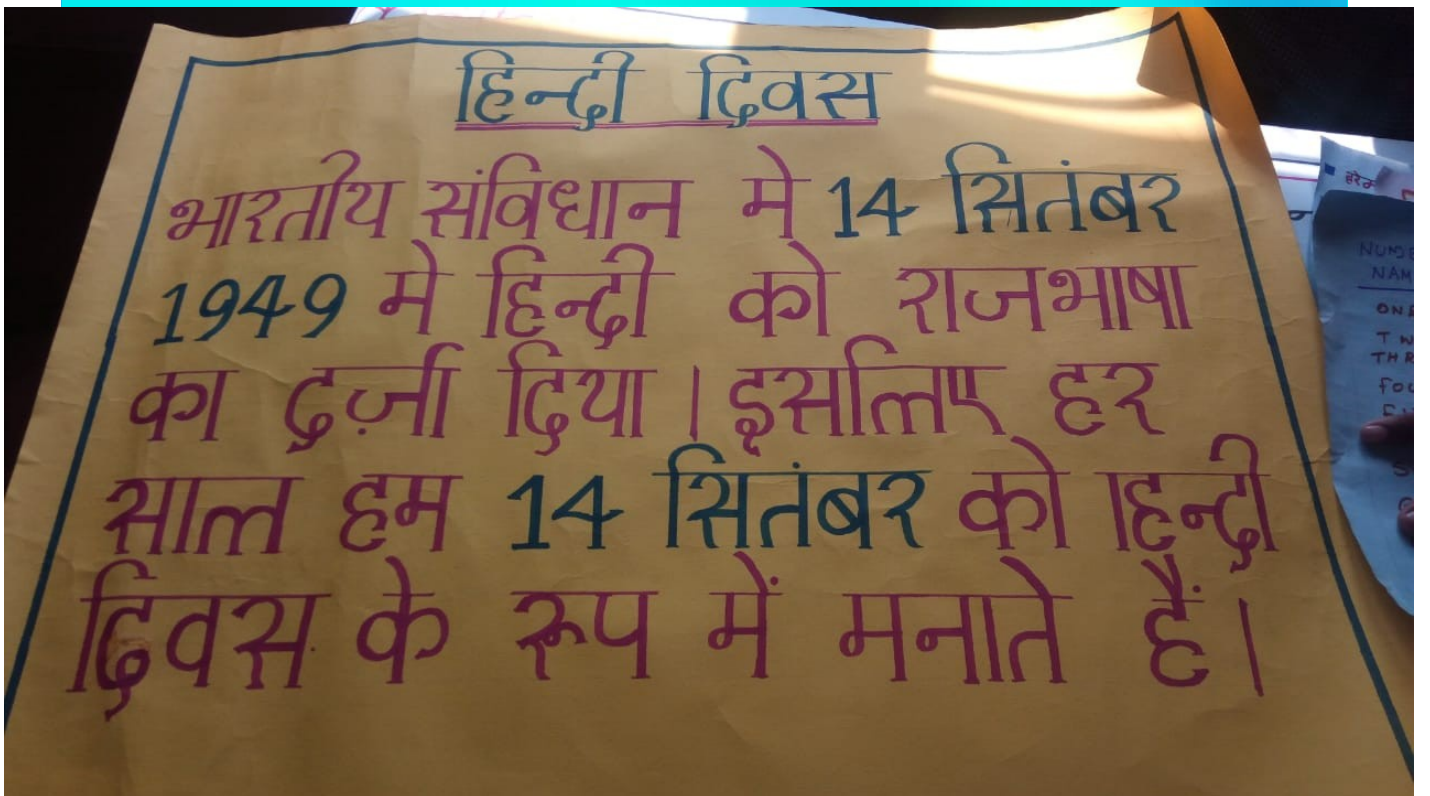 हिन्दी दिवस
भारतीय संविधान मे 14 सितंबर
1949 मे हिन्दी को राजभाषा
का दर्ज़ा दिया । इसलिए हर
साल हम 14 सितंबर को हिन्दी
दिवस के रूप में मनाते हैं ।
ONE